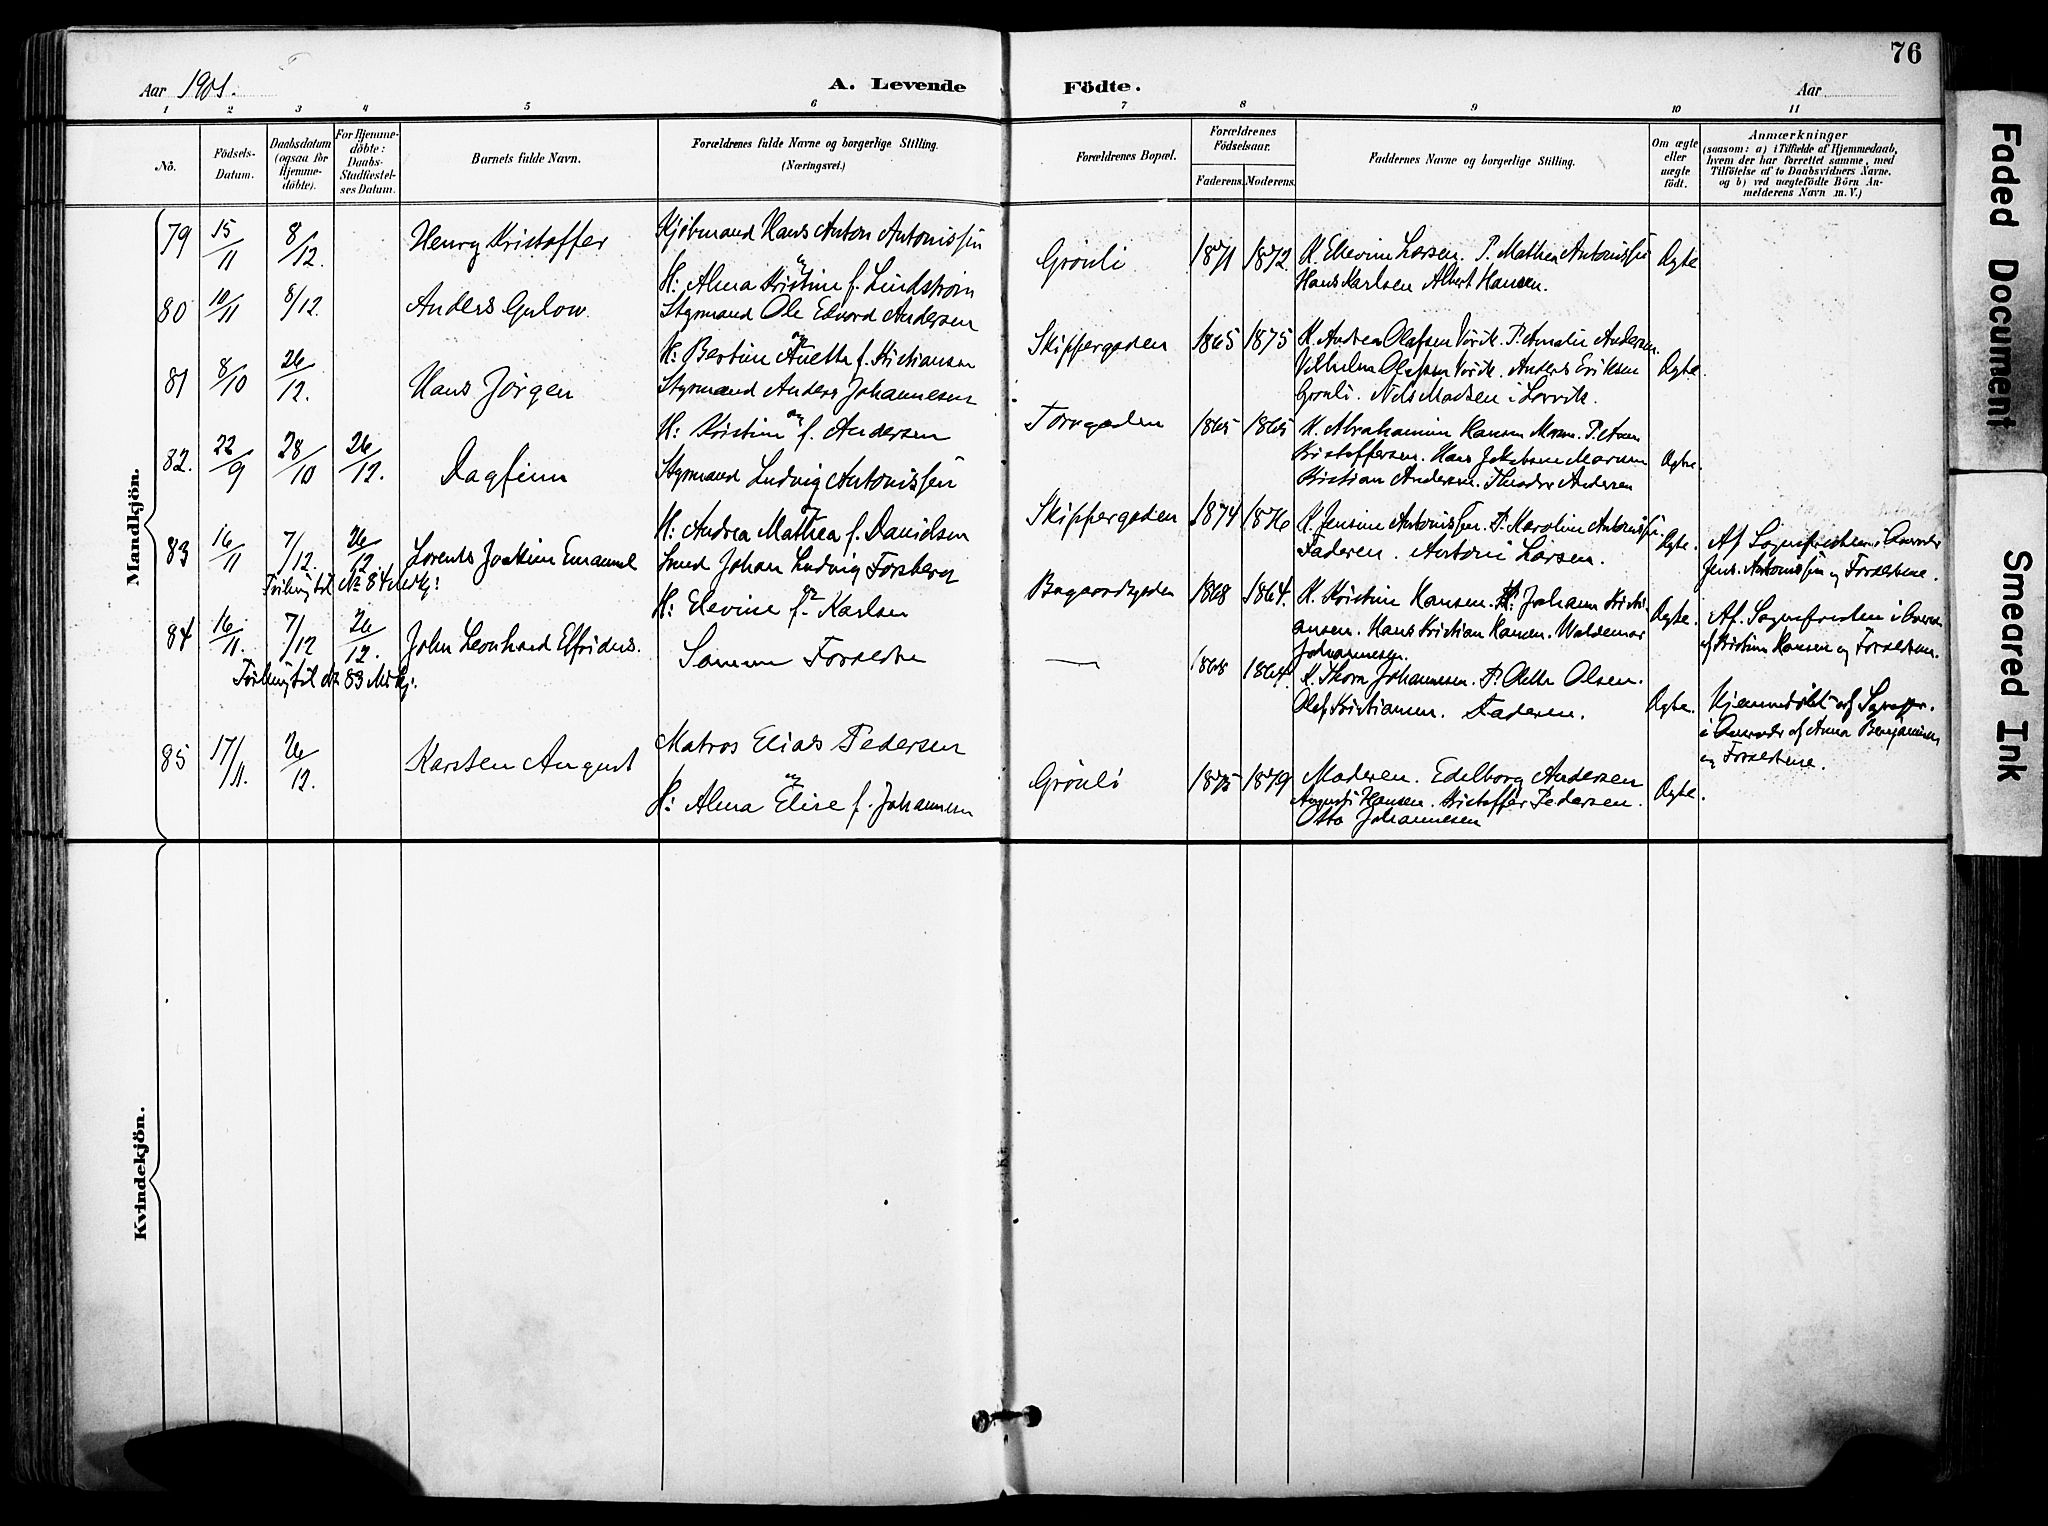 76
Aar 1901.
A. Levende Födte.
Aar
1 2 3 4 5 6 7 8 9 10 11
No.
Födsels-Datum.
Daabsdatum (ogsaa for Hjemmedöbte).
For Hjemmedöbte: Daabs-Stadfæstelses Datum.
Barnets fulde Navn.
Forældrenes fulde Navne og borgerlige Stilling.
(Næringsvei.)
Forældrenes Bopæl.
Forældrenes Födselsaar.
Faderens. Moderens.
Faddernes Navne og borgerlige Stilling.
Om ægte eller uægte födt.
Anmærkninger
(saasom: a) i Tilfælde af Hjemmedaab,
hvem der har forrettet samme, med
Tilföielse af to Daabsvidners Navne,
og b) ved uægtefödte Börn An-
melderens Navn m. V.)
Mandkjön.
79 15/11 8/12. Henry Kristoffer
Kjöbmand Hans Anton Antonissen
og
H: Alma Kristine f. Lindström
Grönli 1871 1872
K. Elevine Larsen. P. Mathea Antonissen
Hans Karlsen Albert Hansen.
Ægte
80 10/11 8/12. Anders Gulow.
Styrmand Ole Edvard Andersen
og
H: Bertine Anette f. Kristiansen
Skippergaden 1865 1875
K. Andrea Olafsen Vörk. P. Amalie Andersen.
Vilhelm Olafsen Vörk. Anders Eriksen
Grönli. Nels Madsen i Larvik.
Ægte.
81 8/10 26/12. Hans Jörgen
Styrmand Anders Johannesen
og
H: Kristine f. Andersen
Torvgaden 1865 1865
K. Abrahamine Hansen P.
Kristoffersen. Hans Jakobsen
Kristian Andersen. Theodor Andersen
Ægte.
82. 22/9 28/10 26/12. Dagfinn
Styrmand Ludvig Antonissen
H: Andrea Mathea f. Danielsen
Skippergaden 1874 1876
K. Jensine Antonissen. P. Karoline Antonissen.
Faderen. Antoni Larsen.
Ægte.
Af Sognepresten i Nærvær
Jens. Antonissen og Forældrene.
83 16/11 7/12. 26/12 Lorents Joakim Emanuel
Tvilling til No 84 Mdkj:
Smed Johan Ludvig Forsberg
og
H: Elevine f. Karlsen
Bøgaardsgaden 1868 1864.
K. Kristine Hansen. P: Johanne Kristi-
ansen. Hans Kristian Hansen. Waldemar
Johannesen
Ægte.
Af Sognepresten i Nærvær
af Kristine Hansen og Forældrene.
84 16/11. 7/12 26/12. John Leonhard Elfridus.
Tvilling til No 83 Mdkj:
Samme Forældre
— 1868 1864.
K. Thora Johannesen. P: Olette Olsen.
Olaf Kristiansen. Faderen.
Ægte.
Hjemmedöbt af Sognepr.
i Nærvær af Anna Benjaminsen
og Forældrene.
85 17/11. 26/12. Karsten August
Matros Elias Pedersen
og
H: Alma Elise f. Johannesen
Grönli 1875 1879
Moderen. Edelborg Andersen
August Hansen. Kristoffer Pedersen.
Otto Johannesen
Ægte.
Kvindekjön.
Faded Document
Smeared Ink